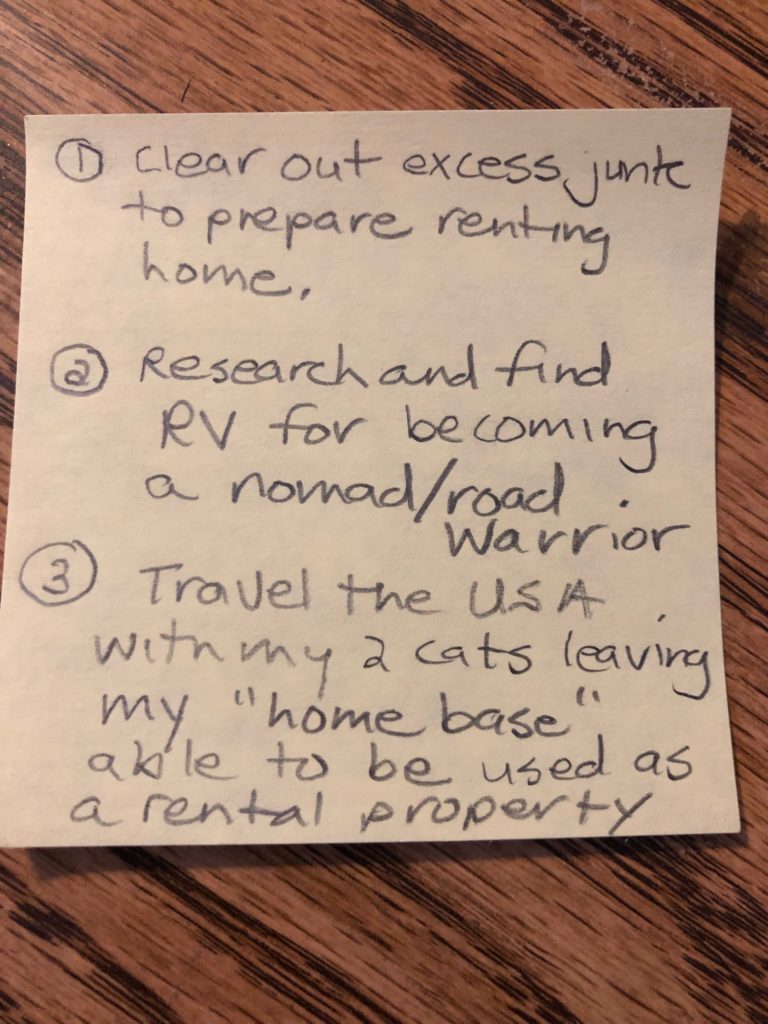 ① Clear out excess junk
to prepare renting
home.
② Research and find
RV for becoming
a nomad/road
Warrior
③ Travel the USA
with my 2 cats leaving
my "home base"
able to be used as
a rental property